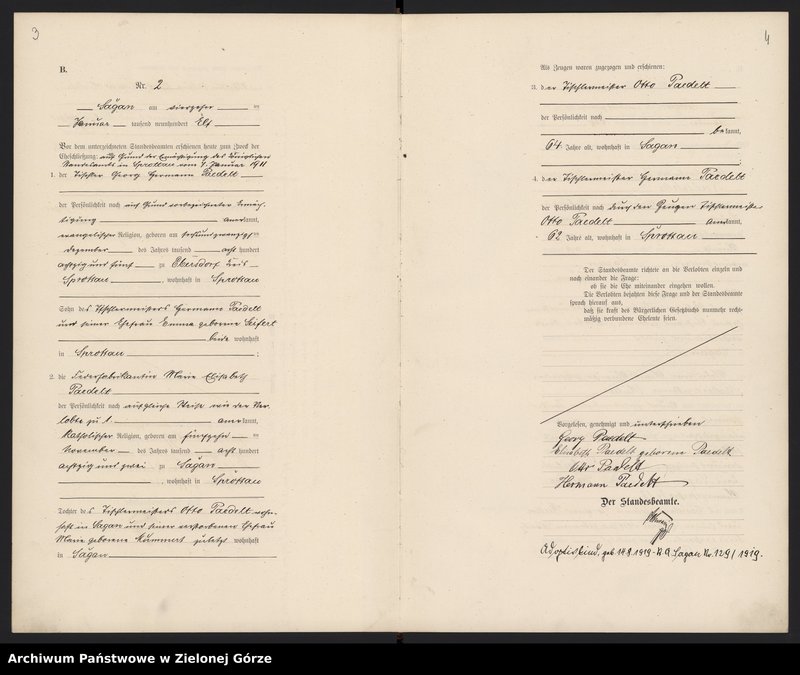 3
B.
Nr. 2
Sagan am vierzehnten
Januar tausend neunhundert Elf
Vor dem unterzeichneten Standesbeamten erschienen heute zum Zweck der
Eheschließung: auf Grund der Ermächtigung des Königlichen
Standesamts in Sprottau vom 7. Januar 1911
1. der Tischler Georg Hermann Paedelt
der Persönlichkeit nach auf Grund vorbezeichneter Ermäch-
tigung anerkannt,
evangelischer Religion, geboren am sechsundzwanzigsten
Dezember des Jahres tausend acht hundert
achtzig und fünf zu Ebersdorf Kreis
Sprottau, wohnhaft in Sprottau
Sohn des Tischlermeisters Hermann Paedelt
und seiner Ehefrau Emma geborene Seifert
beide wohnhaft
in Sprottau
2. die Marie Elisabeth
Paedelt
der Persönlichkeit nach auf gleiche Weise wie der Ver-
lobte zu 1. anerkannt,
katholischer Religion, geboren am fünfzehnten
November des Jahres tausend acht hundert
achtzig und zwei zu Sagan
, wohnhaft in Sprottau
Tochter des Tischlermeisters Otto Paedelt wohn-
haft in Sagan und seiner verstorbenen Ehefrau
Marie geborene zuletzt wohnhaft
in Sagan
4
Als Zeugen waren zugezogen und erschienen:
3. der Tischlermeister Otto Paedelt
der Persönlichkeit nach
bekannt,
64 Jahre alt, wohnhaft in Sagan
4. der Tischlermeister Hermann Paedelt
der Persönlichkeit nach durch den Zeugen Tischlermeister
Otto Paedelt anerkannt,
62 Jahre alt, wohnhaft in Sprottau
Der Standesbeamte richtete an die Verlobten einzeln und
nach einander die Frage:
ob sie die Ehe miteinander eingehen wollen.
Die Verlobten bejahten diese Frage und der Standesbeamte
sprach hierauf aus,
daß sie kraft des Bürgerlichen Gesetzbuchs nunmehr recht-
mäßig verbundene Eheleute seien.
Vorgelesen, genehmigt und unterschrieben
Georg Paedelt
Elisabeth Paedelt geborene Paedelt
Otto Paedelt
Hermann Paedelt
Der Standesbeamte.
Adoptivkind, geb. 14.8.1919 - St. A. Sagan Nr. 129/1919.
Archiwum Państwowe w Zielonej Górze